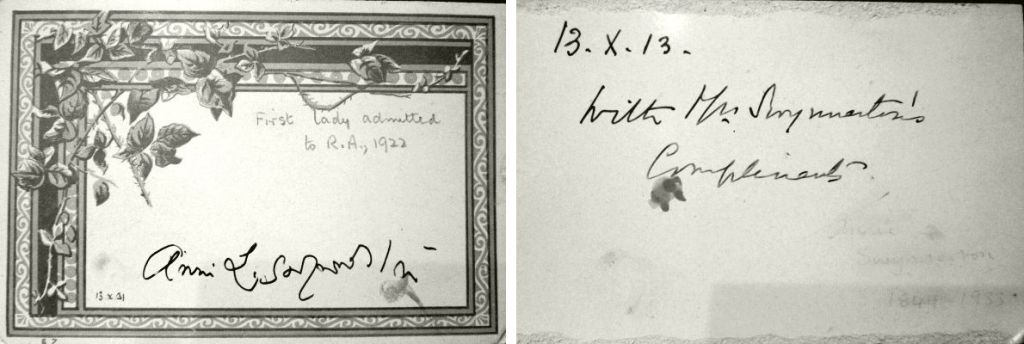 First lady admitted
to R.A., 1922
Annie L. Swynnerton
13 X 31
13. X. 13.
With Mrs Swynnerton's
Compliments
Annie
Swynnerton
1844-1933